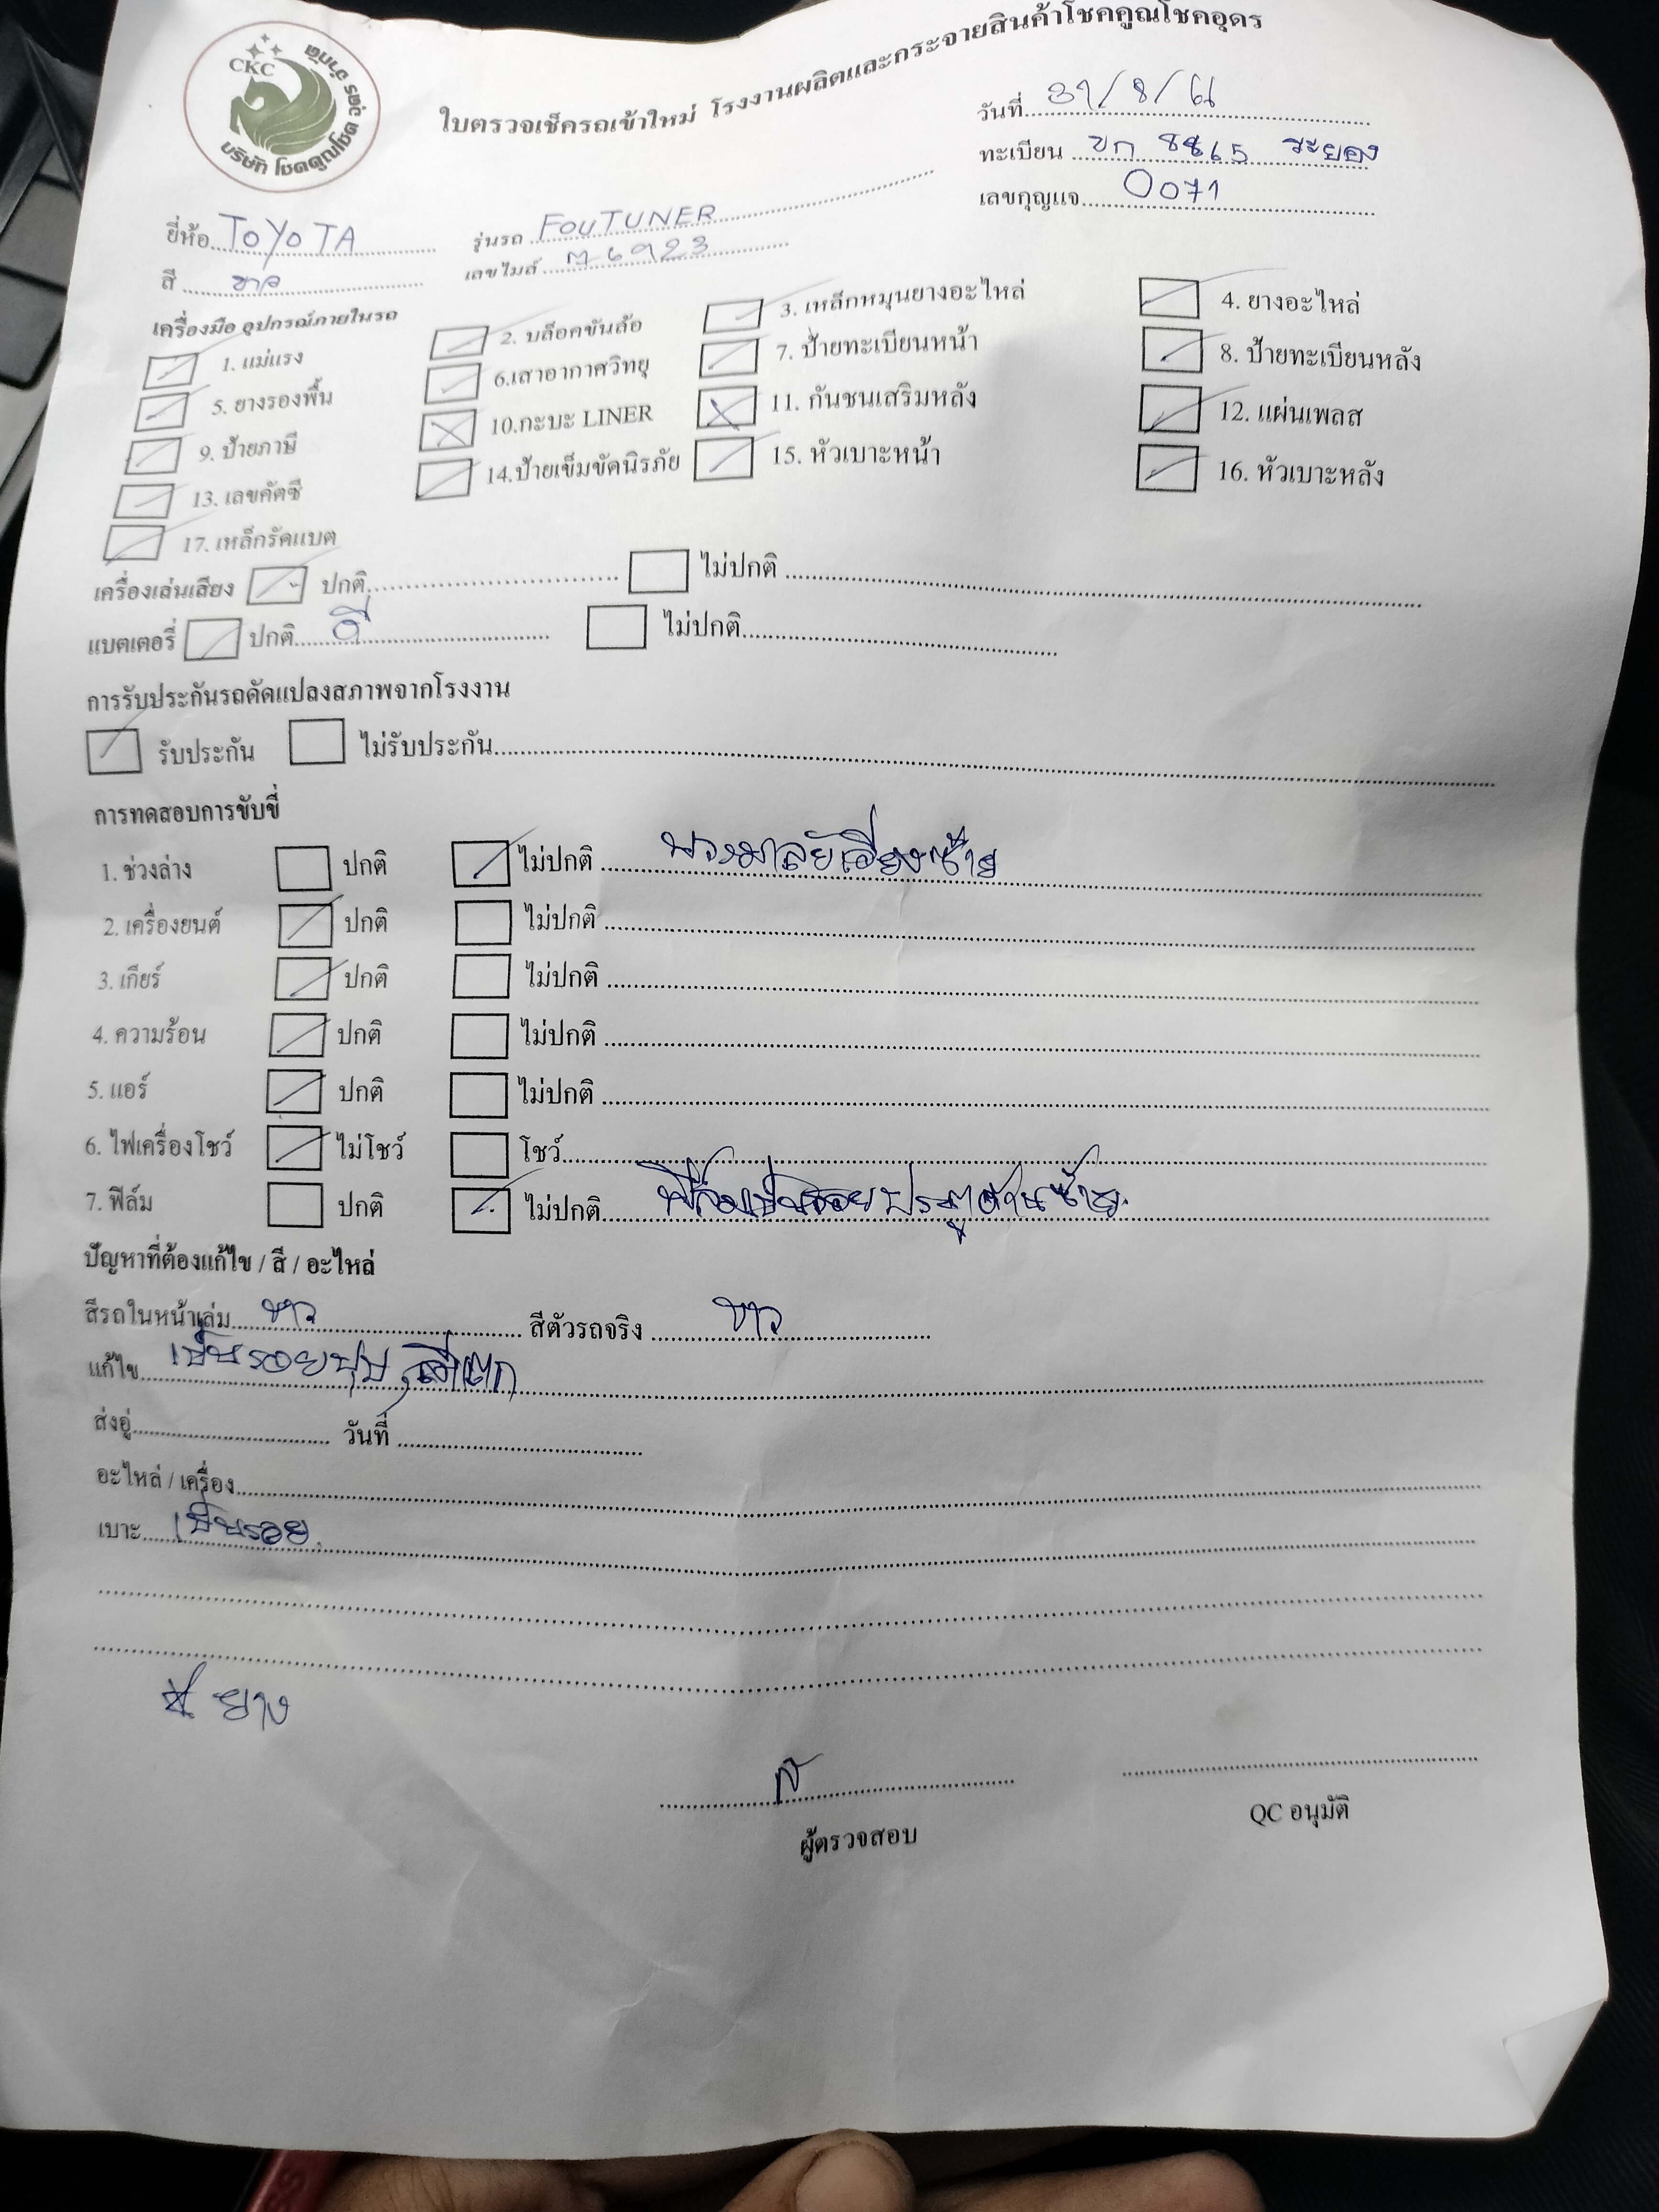 CKC
บริษัท โชคคูณโชค อุดร จำกัด
ใบตรวจเช็ครถเข้าใหม่ โรงงานผลิตและกระจายสินค้าโชคคูณโชคอุดร
วันที่ 31/8/
ทะเบียน ขก 8865 ระยอง
เลขกุญแจ 0071
ยี่ห้อ TOYOTA รุ่นรถ FOUTUNER
สี ขาว เลขไมล์
เครื่องมือ อุปกรณ์ภายในรถ
1. แม่แรง 2. บล็อคขันล้อ 3. เหล็กหมุนยางอะไหล่ 4. ยางอะไหล่
5. ยางรองพื้น 6.เสาอากาศวิทยุ 7. ป้ายทะเบียนหน้า 8. ป้ายทะเบียนหลัง
9. ป้ายภาษี 10.กะบะ LINER 11. กันชนเสริมหลัง 12. แผ่นเพลส
13. เลขคัตซี 14.ป้ายเข็มขัดนิรภัย 15. หัวเบาะหน้า 16. หัวเบาะหลัง
17. เหล็กรัดแบต
เครื่องเล่นเสียง ปกติ ไม่ปกติ
แบตเตอรี่ ปกติ ดี ไม่ปกติ
การรับประกันรถดัดแปลงสภาพจากโรงงาน
รับประกัน ไม่รับประกัน
การทดสอบการขับขี่
1. ช่วงล่าง ปกติ ไม่ปกติ พวงมาลัยเอียงซ้าย
2. เครื่องยนต์ ปกติ ไม่ปกติ
3. เกียร์ ปกติ ไม่ปกติ
4. ความร้อน ปกติ ไม่ปกติ
5. แอร์ ปกติ ไม่ปกติ
6. ไฟเครื่องโชว์ ไม่โชว์ โชว์
7. ฟิล์ม ปกติ ไม่ปกติ ฟิล์มเป็นรอยประตูด้านซ้าย
ปัญหาที่ต้องแก้ไข / สี / อะไหล่
สีรถในหน้าเล่ม ขาว สีตัวรถจริง ขาว
แก้ไข เป็นรอยบุบ, สีแตก
ส่งอู่ วันที่
อะไหล่ / เครื่อง
เบาะ เป็นรอย
* ยาง
ผู้ตรวจสอบ QC อนุมัติ